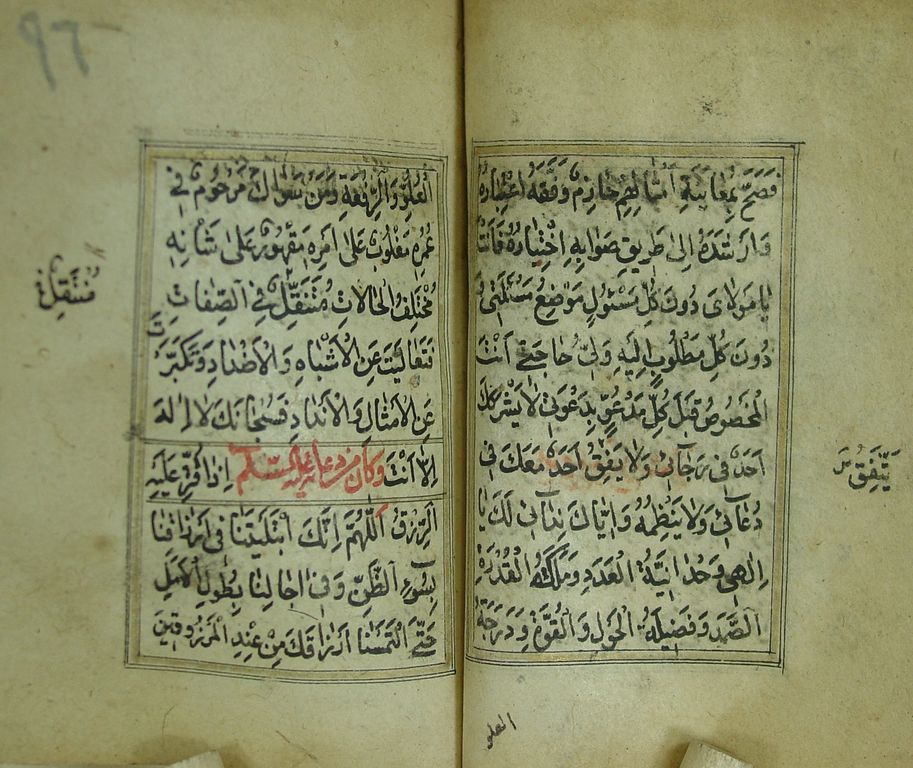 فَصَحَّ بِمُعَايَنَةِ اَمْثَالِهِمْ حَازِمٌ وَفَّقَهُ اعْتِبَارُهُ
وَاَرْشَدَهُ اِلٰى طَرِيقِ صَوَابِهِ اخْتِيَارُهُ فَاَنْتَ
يَا مَوْلَاىَ دُونَ كُلِّ مَسْئُولٍ مَوْضِعُ مَسْئَلَتِى وَ
دُونَ كُلِّ مَطْلُوبٍ اِلَيْهِ وَلِىُّ حَاجَتِى اَنْتَ
الْمَخْصُوصُ قَبْلَ كُلِّ مَدْعُوٍّ بِدَعْوَتِى لَا يَشْرَكُكَ
اَحَدٌ فِى رَجَائِى وَلَا يَفِقُ اَحَدٌ مَعَكَ فِى
دُعَائِى وَلَا يَنْظِمُهُ وَاِيَّاكَ نِدَائِى لَكَ يَا
اِلٰهِى وَحْدَانِيَّةُ الْعَدَدِ وَمَلَكَةُ الْقُدْرَةِ
الصَّمَدِ وَفَضِيلَةُ الْحَوْلِ وَالْقُوَّةِ وَدَرَجَةُ
يَتَّفِقُ
العلو
٩٦
الْعُلُوِّ وَالرِّفْعَةِ وَمَنْ سِوَاكَ مَرْحُومٌ فِى
عُمُرِهِ مَغْلُوبٌ عَلٰى اَمْرِهِ مَقْهُورٌ عَلٰى شَاْنِهِ
مُخْتَلِفُ الْحَالَاتِ مُتَنَقِّلٌ فِى الصِّفَاتِ
فَتَعَالَيْتَ عَنِ الْاَشْبَاهِ وَالْاَضْدَادِ وَتَكَبَّرْتَ
عَنِ الْاَمْثَالِ وَالْاَنْدَادِ فَسُبْحَانَكَ لَا اِلٰهَ
اِلَّا اَنْتَ وَكَانَ مِنْ دُعَائِهِ عَلَيْهِ السَّلَامُ اِذَا قُتِّرَ عَلَيْهِ
الرِّزْقُ اَللّٰهُمَّ اِنَّكَ ابْتَلَيْتَنَا فِى اَرْزَاقِنَا
بِسُوءِ الظَّنِّ وَفِى اٰجَالِنَا بِطُولِ الْاَمَلِ
حَتَّى الْتَمَسْنَا اَرْزَاقَكَ مِنْ عِنْدِ الْمَرْزُوقِينَ
مُنْتَقِلٌ